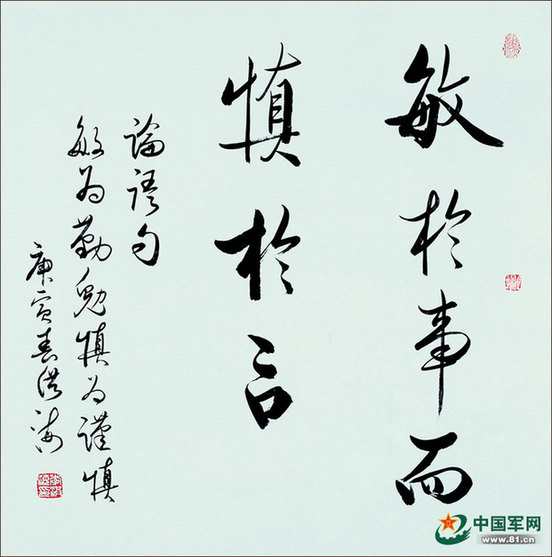 敏於事而
慎於言
論語句
敏为勤勉慎为謹慎
庚寅春洪海
中国军网
www.81.cn